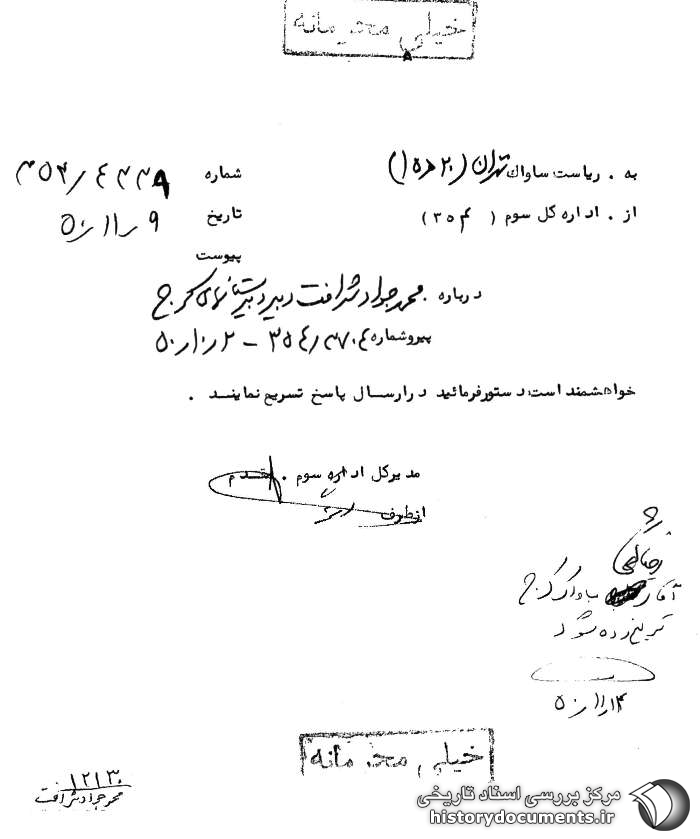 خیلی محرمانه
به . ریاست ساواك تهران (۲۰ ه ۱۵)
شماره ۴۴۳۹ / ۳۵۴
از . اداره کل سوم ( ۳۵۴ )
تاریخ ۹ ر ۱۱ ر ۵۰
پیوست
درباره . محمد جواد شرافت دبیر دبیرستانهای کرج
پیروشماره ۳۷۰۴ / ۳۵۴ – ۲ ر ۱۰ ر ۵۰
خواهشمند است دستورفرمائید درارسال پاسخ تسریع نمایند .
مدیرکل اداره سوم . مقدم
ازطرف
آقای ساواک کرج
شود
۱۴ ر ۱۱ ر ۵۰
خیلی محرمانه
۱۲۱۳۰
محمد جواد شرافت
مرکز بررسی اسناد تاریخی
historydocuments.ir